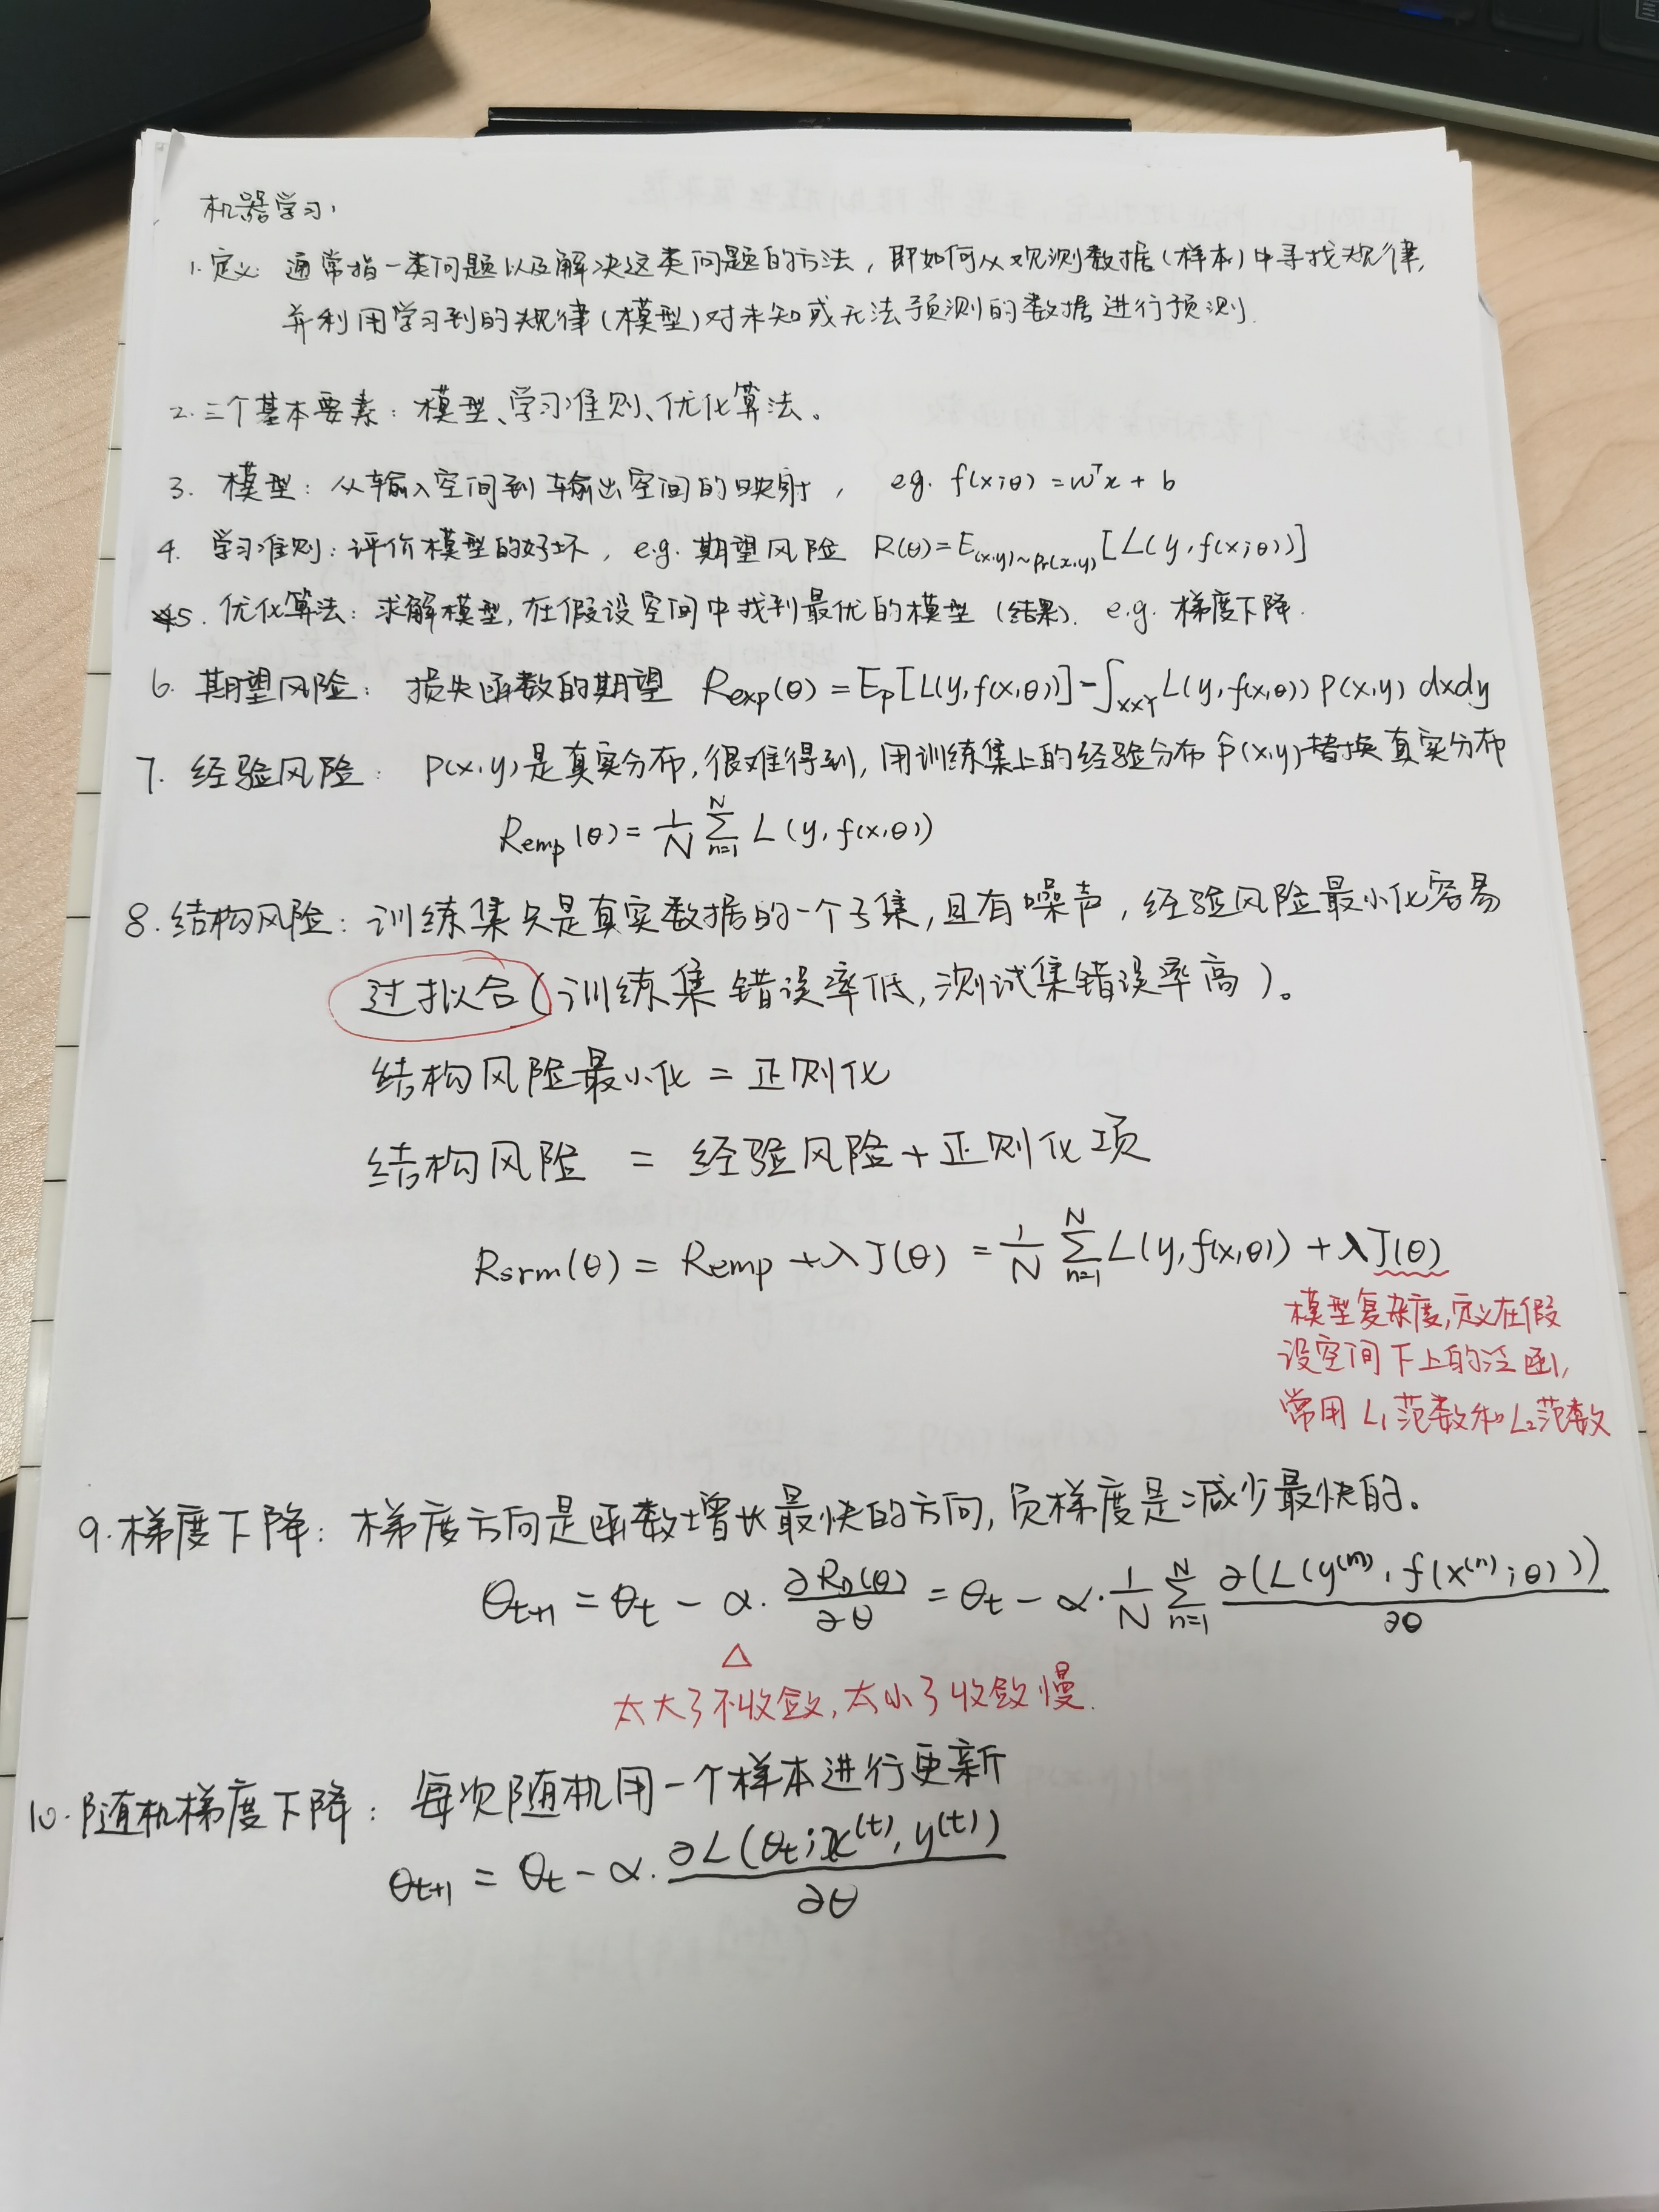 机器学习:
1. 定义: 通常指一类问题以及解决这类问题的方法, 即如何从观测数据(样本)中寻找规律,
并利用学习到的规律(模型)对未知或无法预测的数据进行预测.
2. 三个基本要素: 模型、学习准则、优化算法。
3. 模型: 从输入空间到输出空间的映射, eg. f(x;θ) = wᵀx + b
4. 学习准则: 评价模型的好坏, e.g. 期望风险 R(θ)=E(x,y)~Pr(x,y) [L(y, f(x;θ))]
5. 优化算法: 求解模型, 在假设空间中找到最优的模型 (结果). e.g. 梯度下降.
6. 期望风险: 损失函数的期望 Rexp(θ) = Ep[L(y,f(x,θ))] - ∫x×Y L(y, f(x,θ)) P(x,y) dxdy
7. 经验风险: P(x,y)是真实分布, 很难得到, 用训练集上的经验分布 p̂(x,y)替换真实分布
Remp(θ) = 1/N Σ_{n=1}^{N} L(y, f(x,θ))
8. 结构风险: 训练集只是真实数据的一个子集, 且有噪声, 经验风险最小化容易
过拟合(训练集错误率低, 测试集错误率高)。
结构风险最小化 = 正则化
结构风险 = 经验风险 + 正则化项
Rsrm(θ) = Remp + λJ(θ) = 1/N Σ_{n=1}^{N} L(y, f(x,θ)) + λJ(θ)
模型复杂度, 定义在假
设空间下上的泛函,
常用 L₁范数和L₂范数
9. 梯度下降: 梯度方向是函数增长最快的方向, 负梯度是减少最快的。
θt+1 = θt - α · ∂RD(θ)/∂θ = θt - α · 1/N Σ_{n=1}^{N} ∂(L(y⁽ⁿ⁾, f(x⁽ⁿ⁾;θ)))/∂θ
△
太大了不收敛, 太小了收敛慢.
10. 随机梯度下降: 每次随机用一个样本进行更新
θt+1 = θt - α · ∂L(θt; x⁽ᵗ⁾, y⁽ᵗ⁾)/∂θ